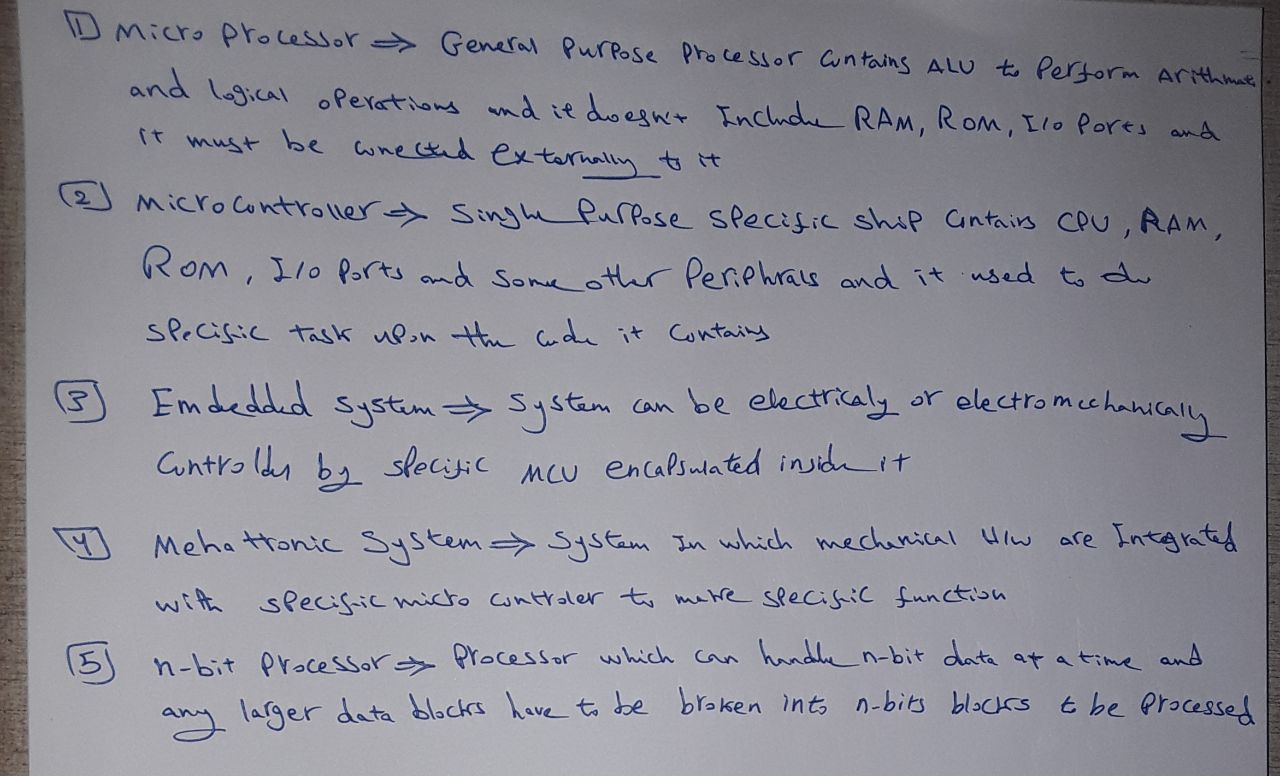 1 Microprocessor ⇒ General Purpose Processor contains ALU to Perform Arithmatic
and logical operations and it doesn't Include RAM, ROM, I/o Ports and
it must be conected externally to it
2 Microcontroller ⇒ Single Purpose specific ship contains CPU, RAM,
ROM, I/o Ports and some other Periphrals and it used to do
specific task upon the code it contains
3 Emdedded system ⇒ system can be electricaly or electromechanicaly
Controlder by specific MCU encapsulated inside it
4 Mehattronic System ⇒ System In which mechanical H/w are Integrated
with specific micro controler to make specific function
5 n-bit processor ⇒ Processor which can handle n-bit data at a time and
any larger data blocks have to be broken into n-bits blocks to be Processed